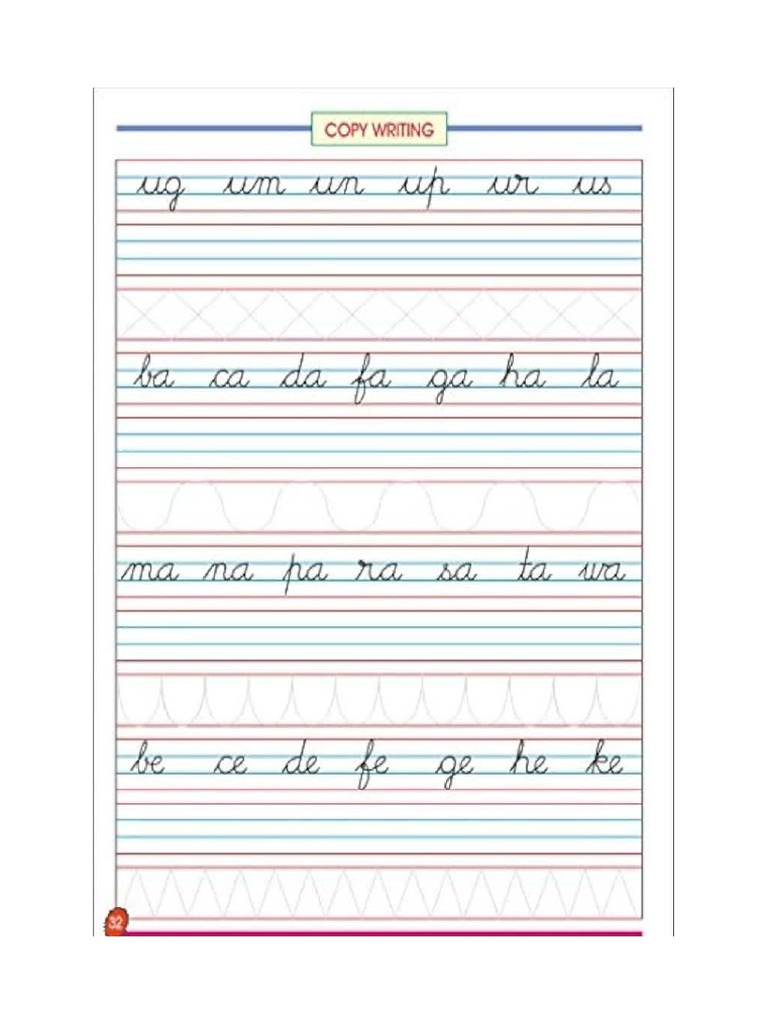 COPY WRITING
ug um un up ur us
ba ca da fa ga ha la
ma na pa ra sa ta wa
be ce de fe ge he ke
32